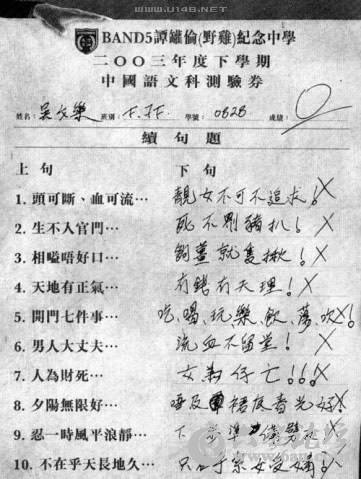 WWW.U148.NET
BAND5譚鑵倫(野雞)紀念中學
二〇〇三年度下學期
中國語文科測驗券
姓名: 班別: F. 學號: 0828 成績: 0
續句題
上句 下句
1. 頭可斷、血可流… 靚女不可不追求!X
2. 生不入官門… 死不劏豬扒!X
3. 相嗌唔好口… 夠薑就隻揪!X
4. 天地有正氣… 有錢有天理!X
5. 開門七件事… 吃、喝、玩、樂、飲、蕩、吹!X
6. 男人大丈夫… 流血不留堂!X
7. 人為財死… 女為仔亡!!!X
8. 夕陽無限好… 裙底春光好!X
9. 忍一時風平浪靜… 下 準 X
10. 不在乎天長地久… 只 女 X